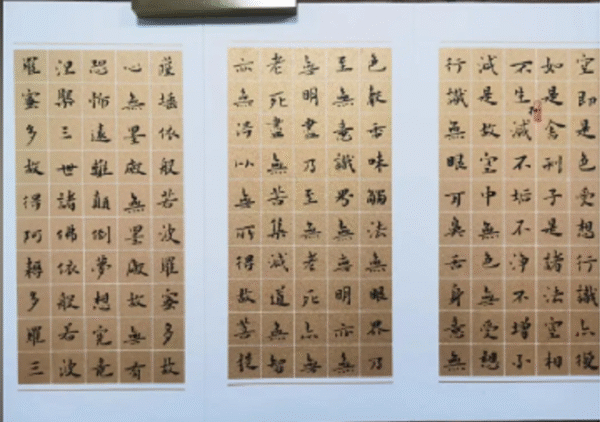 空即是色受想行識亦復
如是舍利子是諸法空相
不生不滅不垢不淨不增不
減是故空中無色無受想
行識無眼耳鼻舌身意無
色聲香味觸法無眼界乃
至無意識界無無明亦無
無明盡乃至無老死亦無
老死盡無苦集滅道無智
亦無得以無所得故菩提
薩埵依般若波羅蜜多故
心無罣礙無罣礙故無有
恐怖遠離顛倒夢想究竟
涅槃三世諸佛依般若波
羅蜜多故得阿耨多羅三